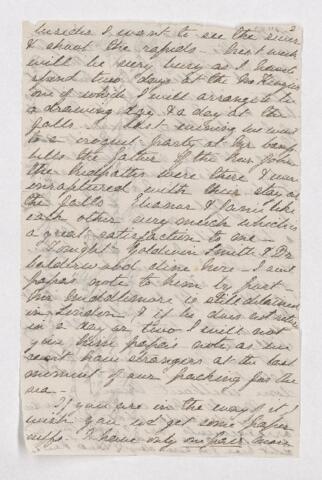 besides I want to see the river
& shoot the rapids. Next week
will be very busy as I have to
spend two days at the
one of which I will arrange to be
a drawing day & a day at the
falls. Last evening we went
to a croquet party at
the father of the Hon John
the were there & were
enraptured with their stay at
the falls. Eleanor & Jamie like
each other very much which is
a great satisfaction to me.
Tonight Goldwin Smith & Dr
dine here. I sent
papa's note to him by post.
Mr Middlemore is still detained
in London & if he does not write
in a day or two I will not
give him papa's note as we
can't have strangers at the last
moment of our packing for the
sea.
If you are in the way of it I
wish you w'd get some paper
cuffs. I have only one pair more